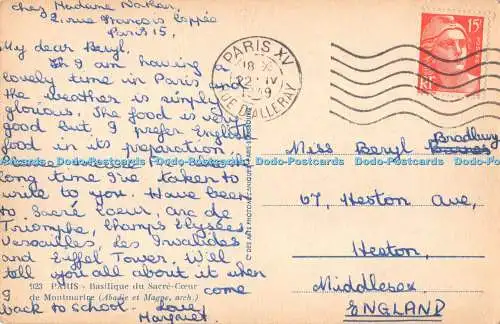 chez Madame
2, rue François Coppée
Paris 15.
My dear Beryl,
I am having a
lovely time in Paris and
the weather is simply
glorious. The food is very
good but I prefer English
food in its preparation.
long time I've taken to
write to you. Have been
to Sacré Coeur, Arc de
Triomphe, Champs Elysées
Versailles, Les Invalides
and Eiffel Tower. Will
tell you all about it when
I come
back to school. Love,
Margaret.
923 PARIS - Basilique du Sacré-Cœur
de Montmartre (Abadie et Magne, arch.)
PARIS XV
18
22 IV
RUE D'ALLERAY
15F
RF
Miss Beryl Bradbury
67, Heston Ave,
Heston,
Middlesex
ENGLAND
Dodo-Postcards Dodo-Postcards Dodo-Postcards Dodo-Postcards Dodo-Postcards